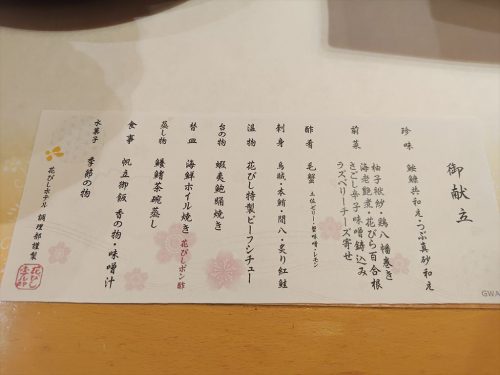 御献立
珍味　鮟鱇共和え・つぶ真砂和え
前菜　柚子袱紗・鶏八幡巻き
海老艶煮・花びら百合根
さごし辛子味噌鋳込み
ラズベリーチーズ寄せ
酢肴　毛蟹　土佐ゼリー・蟹味噌・レモン
刺身　烏賊・本鮪・間八・炙り紅鮭
温物　花びし特製ビーフシチュー
台の物　蝦夷鮑陶焼き
替皿　海鮮ホイル焼き　花びしポン酢
蒸し物　鰊鰭茶碗蒸し
食事　帆立御飯　香の物・味噌汁
水菓子　季節の物
花びしホテル　調理部謹製
GWA